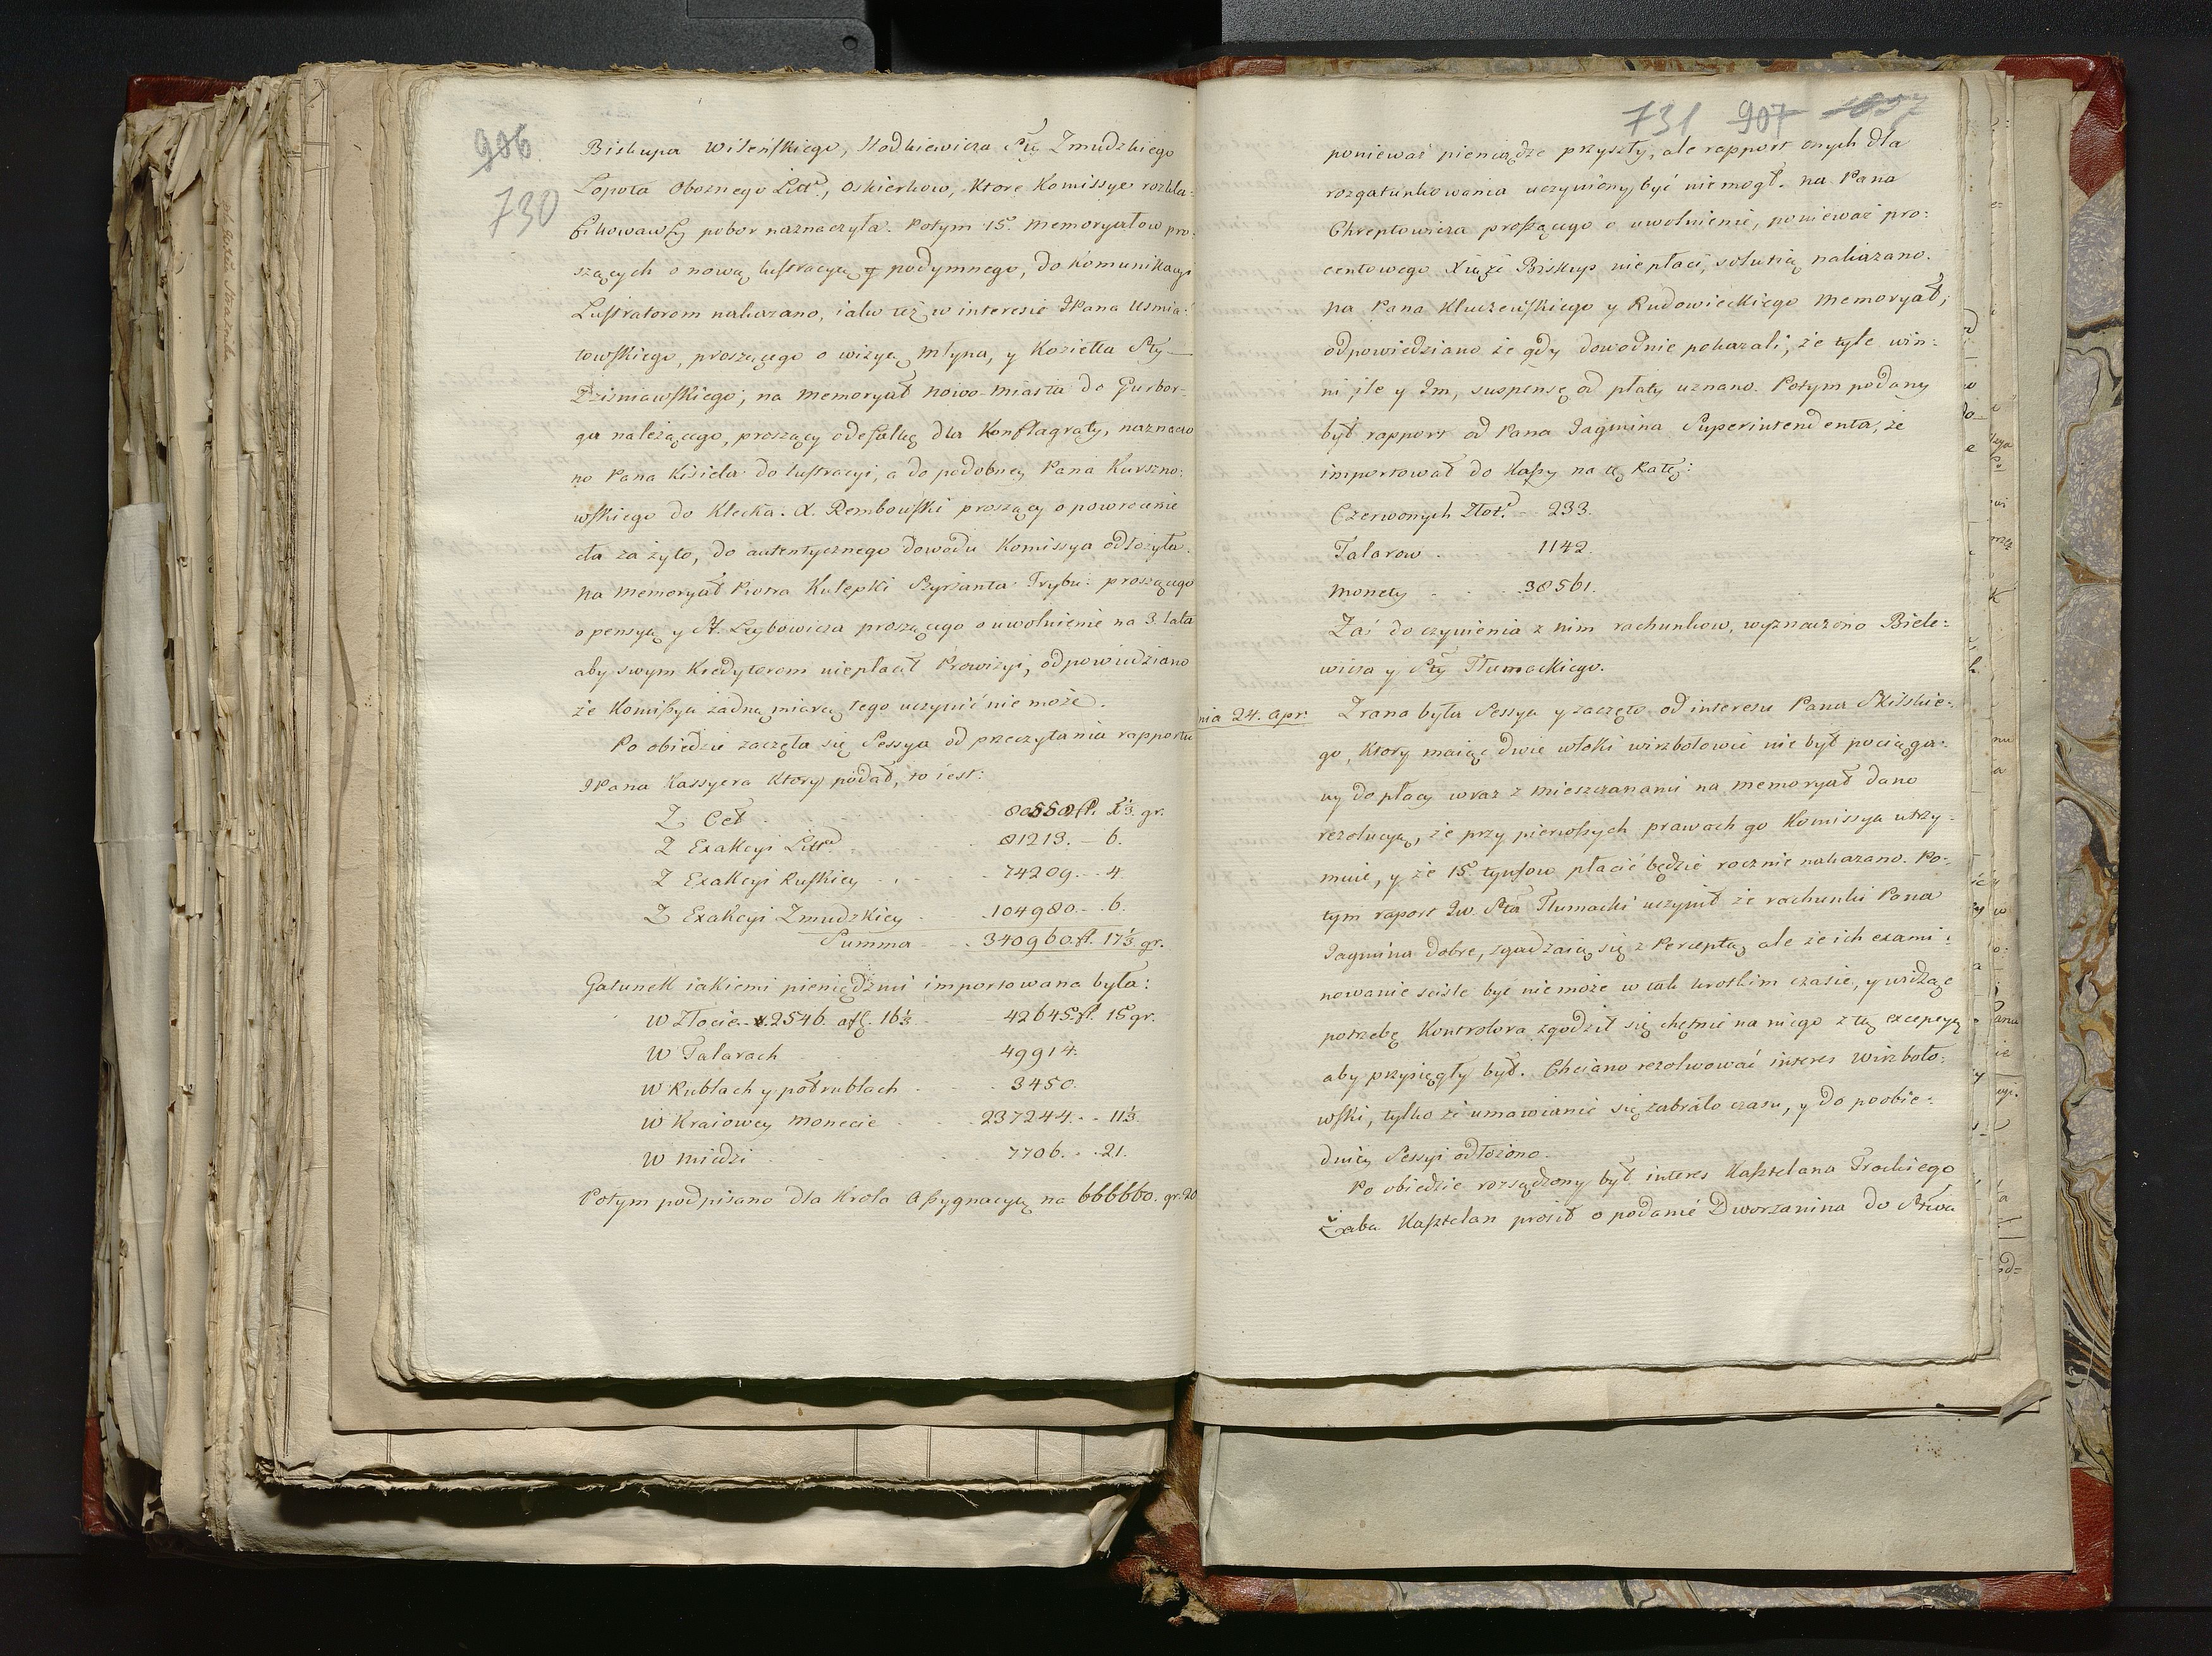 906
730
Biskupa Wileńskiego, Hodkiewicza Stt̃y Zmudzkiego
Łopota Oboznego Littõ, Oskierkow, ktore Komissye rozkla:
ssikowawszy pobor naznaczyła. Potym 15. Memoryałow pro:
szących o nową lustracyą y podymnego, do komunikacyi
Lustratorom nakazano, iako też w interesie JPana Usmia:
towskiego, proszącego o wizyą Młyna, y Koziełła Stt̃y
Dziśniawskiego, na memoryał Nowo-miasta do Gurbor-
gu należącego, proszący odesałkę dla Konflagraty, naznaczo
no Pana Kisiela do lustracyi, a do podobney Pana Kurszno:
wskiego do Klecka. X. Rembowski proszący o powrocenie
cła za żyto, do autentycznego dowodu Komissya odłożyła.
na memoryał Piotra Kulepki Szyrżanta Trybu: proszącego
o pensyą y St. Leybowicza proszącego o uwolnienie na 3. lata
aby swym Kredytorom niepłacił Prowizyi, odpowiedziano
że Komissya żadną miarą tego uczynić nie może.
Po obiedzie zaczęła się Sessya od przeczytania rapportu
JPana Kassyera który podał, to iest:
Z Ceł 80550 fl. 1⅓. gr.
Z Exakcyi Littõ 81213. – 6.
Z Exakcyi Ruskiey 74209. – 4.
Z Exakcyi Zmudzkiey 104980. – 6.
Summa 340960. fl. 17⅓. gr.
Gatunek iakiemi pieniędzmi importowana była:
W Złocie # 2546. afl. 16⅓ 42645. fl. 15 gr.
W Talarach 49914.
W Rublach y połrublach 3450.
W Kraiowey monecie 237244. 11⅓
W miedzi 7706. 21.
Potym podpisano dla Krola Assygnacyą na 666660. gr. 20
731 907 1097
ponieważ pieniądze przyszły, ale rapport onych dla
rozgatunkowania uczyniony być nie mogł. na Pana
Chreptowicza proszącego o uwolnienie, ponieważ pro:
centowego Xiąże Biskup niepłaci, solucią nakazano.
na Pana Kluczewskiego y Rudowieckiego Memoryał,
odpowiedziano że gdy dowodnie pokazali, że tyle win:
ni ile y Im, suspensę od płaty uznano. Potym podany
był rapport od Pana Jagmina Superintendenta, że
importował do Kassy na tę Ratę:
Czerwonych Złot. 233.
Talarow 1142.
Monety 38561.
Zaś do czynienia z nim rachunkow, wyznaczono Biele:
wicza y Stt̃y Tłumackiego.
nia 24. Apr. Zrana była Sessya y zaczęto od interesu Pana Skilskie:
go, ktory maiąc dwie włoki wirzbołowie nie był pociąga:
ny do płacy wraz z mieszczanami na memoryał dano
rezolucyą, że przy pierwszych prawach go Komissya utrzy:
muie, y że 15. tynfow płacić będzie rocznie nakazano. Po:
tym raport Jw. Stt̃a Tłumacki uczynił że rachunki Pana
Jagmina dobre, zgadzaią się z Perceptą, ale że ich exami:
nowanie scisłe być nie może w tak krotkim czasie, y widząc
potrzebę Kontrolora, zgodził się chętnie na niego z tą excepcyą
aby przysięgły był. Chciano rezolwować interes Wirzboło:
wski, tylko że umawianie się zabrało czasu, y do poobie:
dniey Sessyi odłożono.
Po obiedzie rozsądzony był interes Kasztelana Trockiego
Żaba Kasztelan prosił o podanie Dworzanina do Sttwa